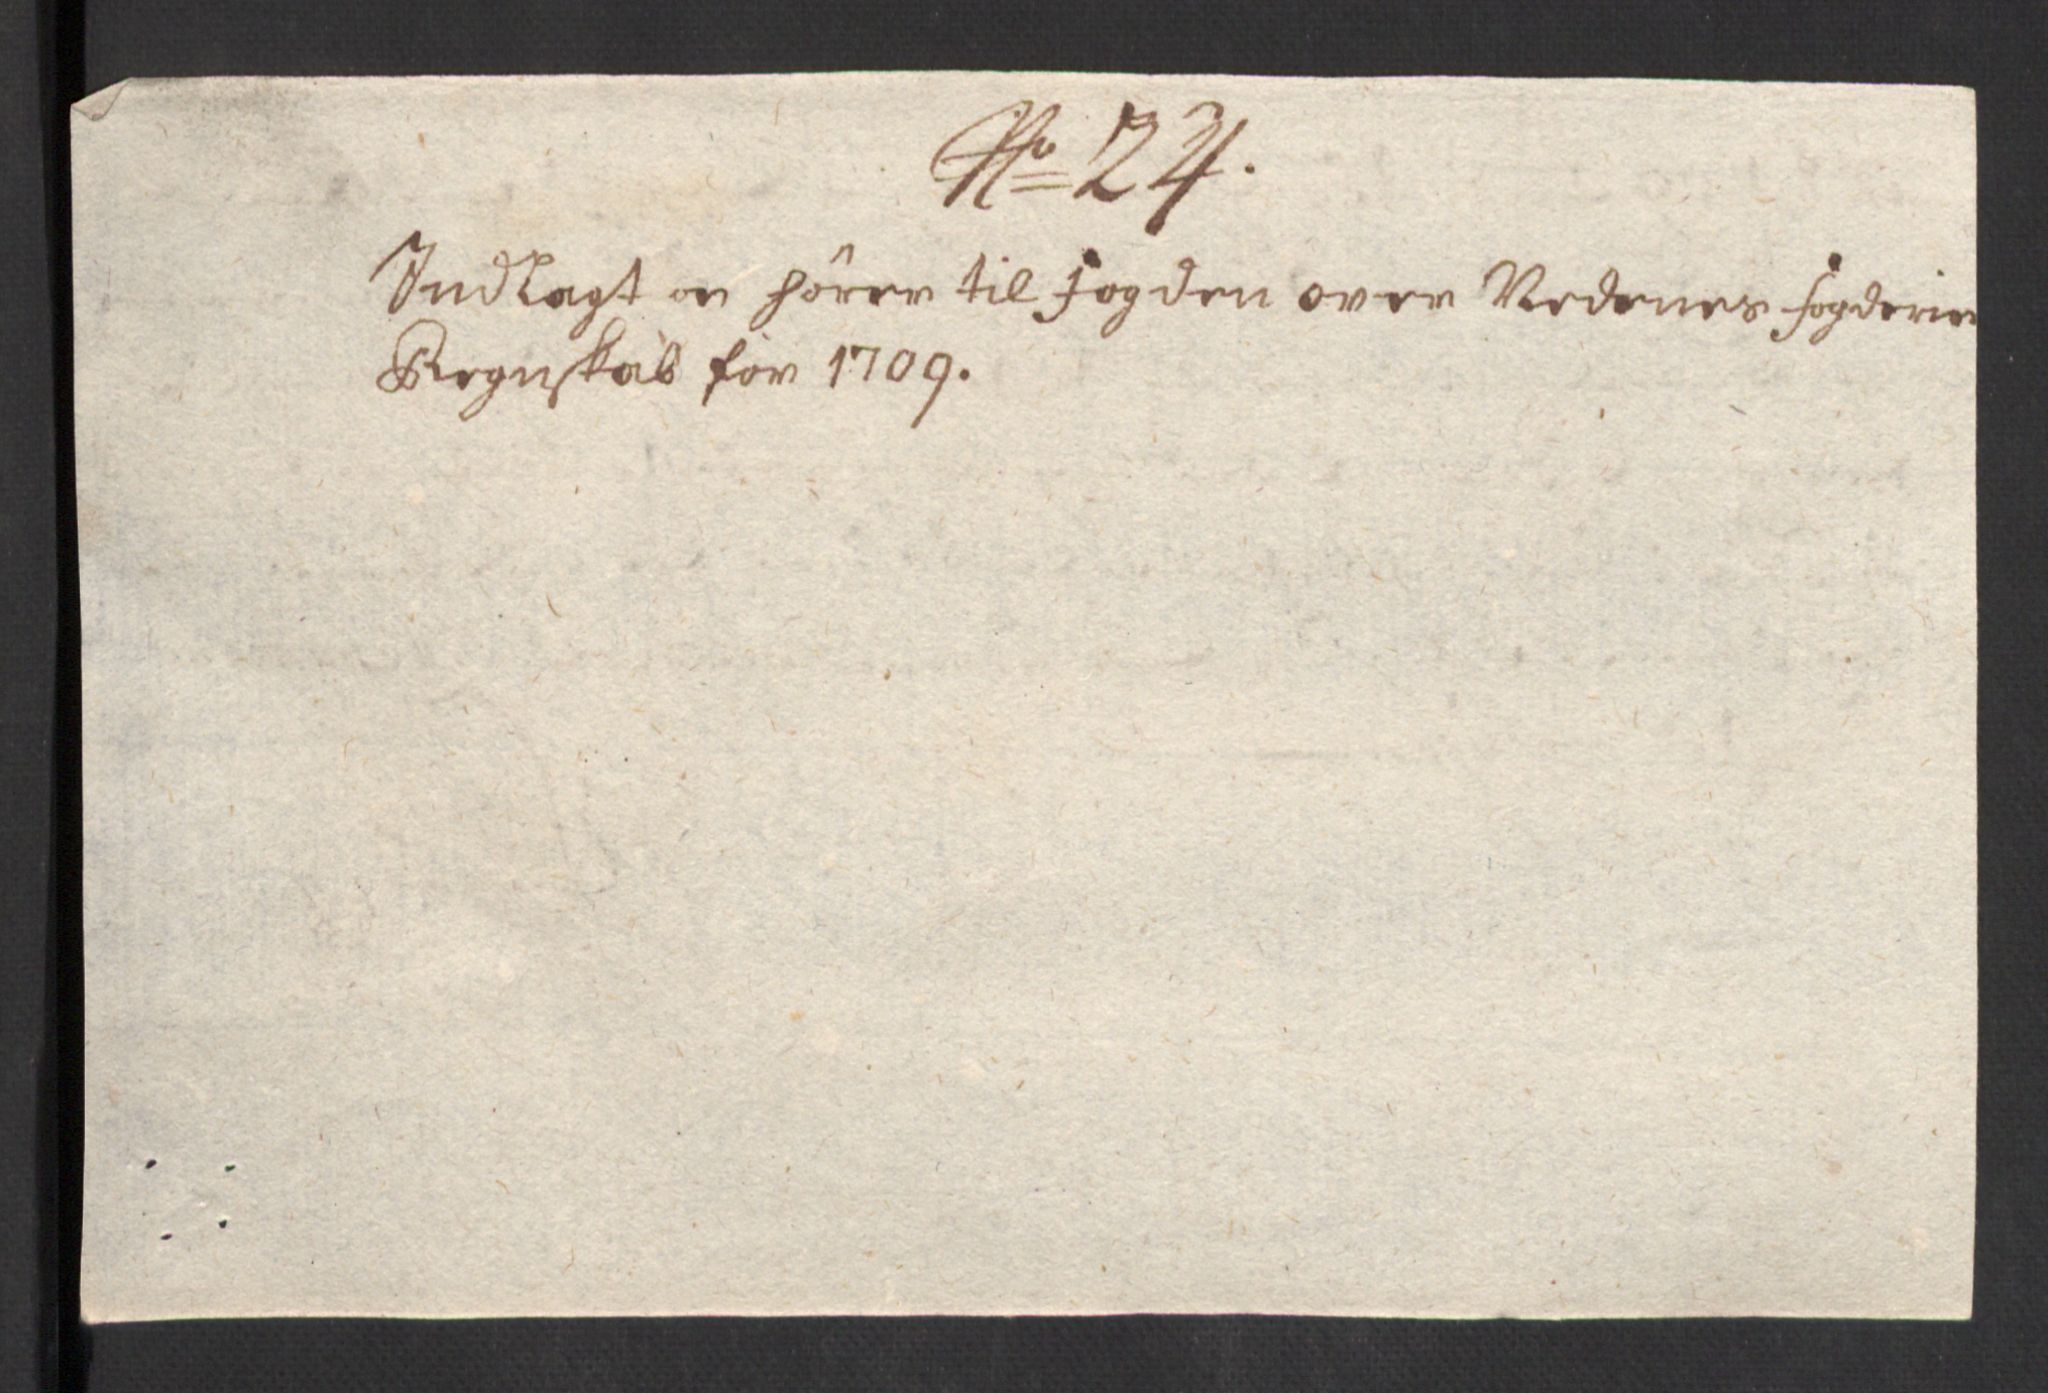 No 24.
Indlagt er hörer til fogden over Nedenes fogderie
Regnskab for 1709.